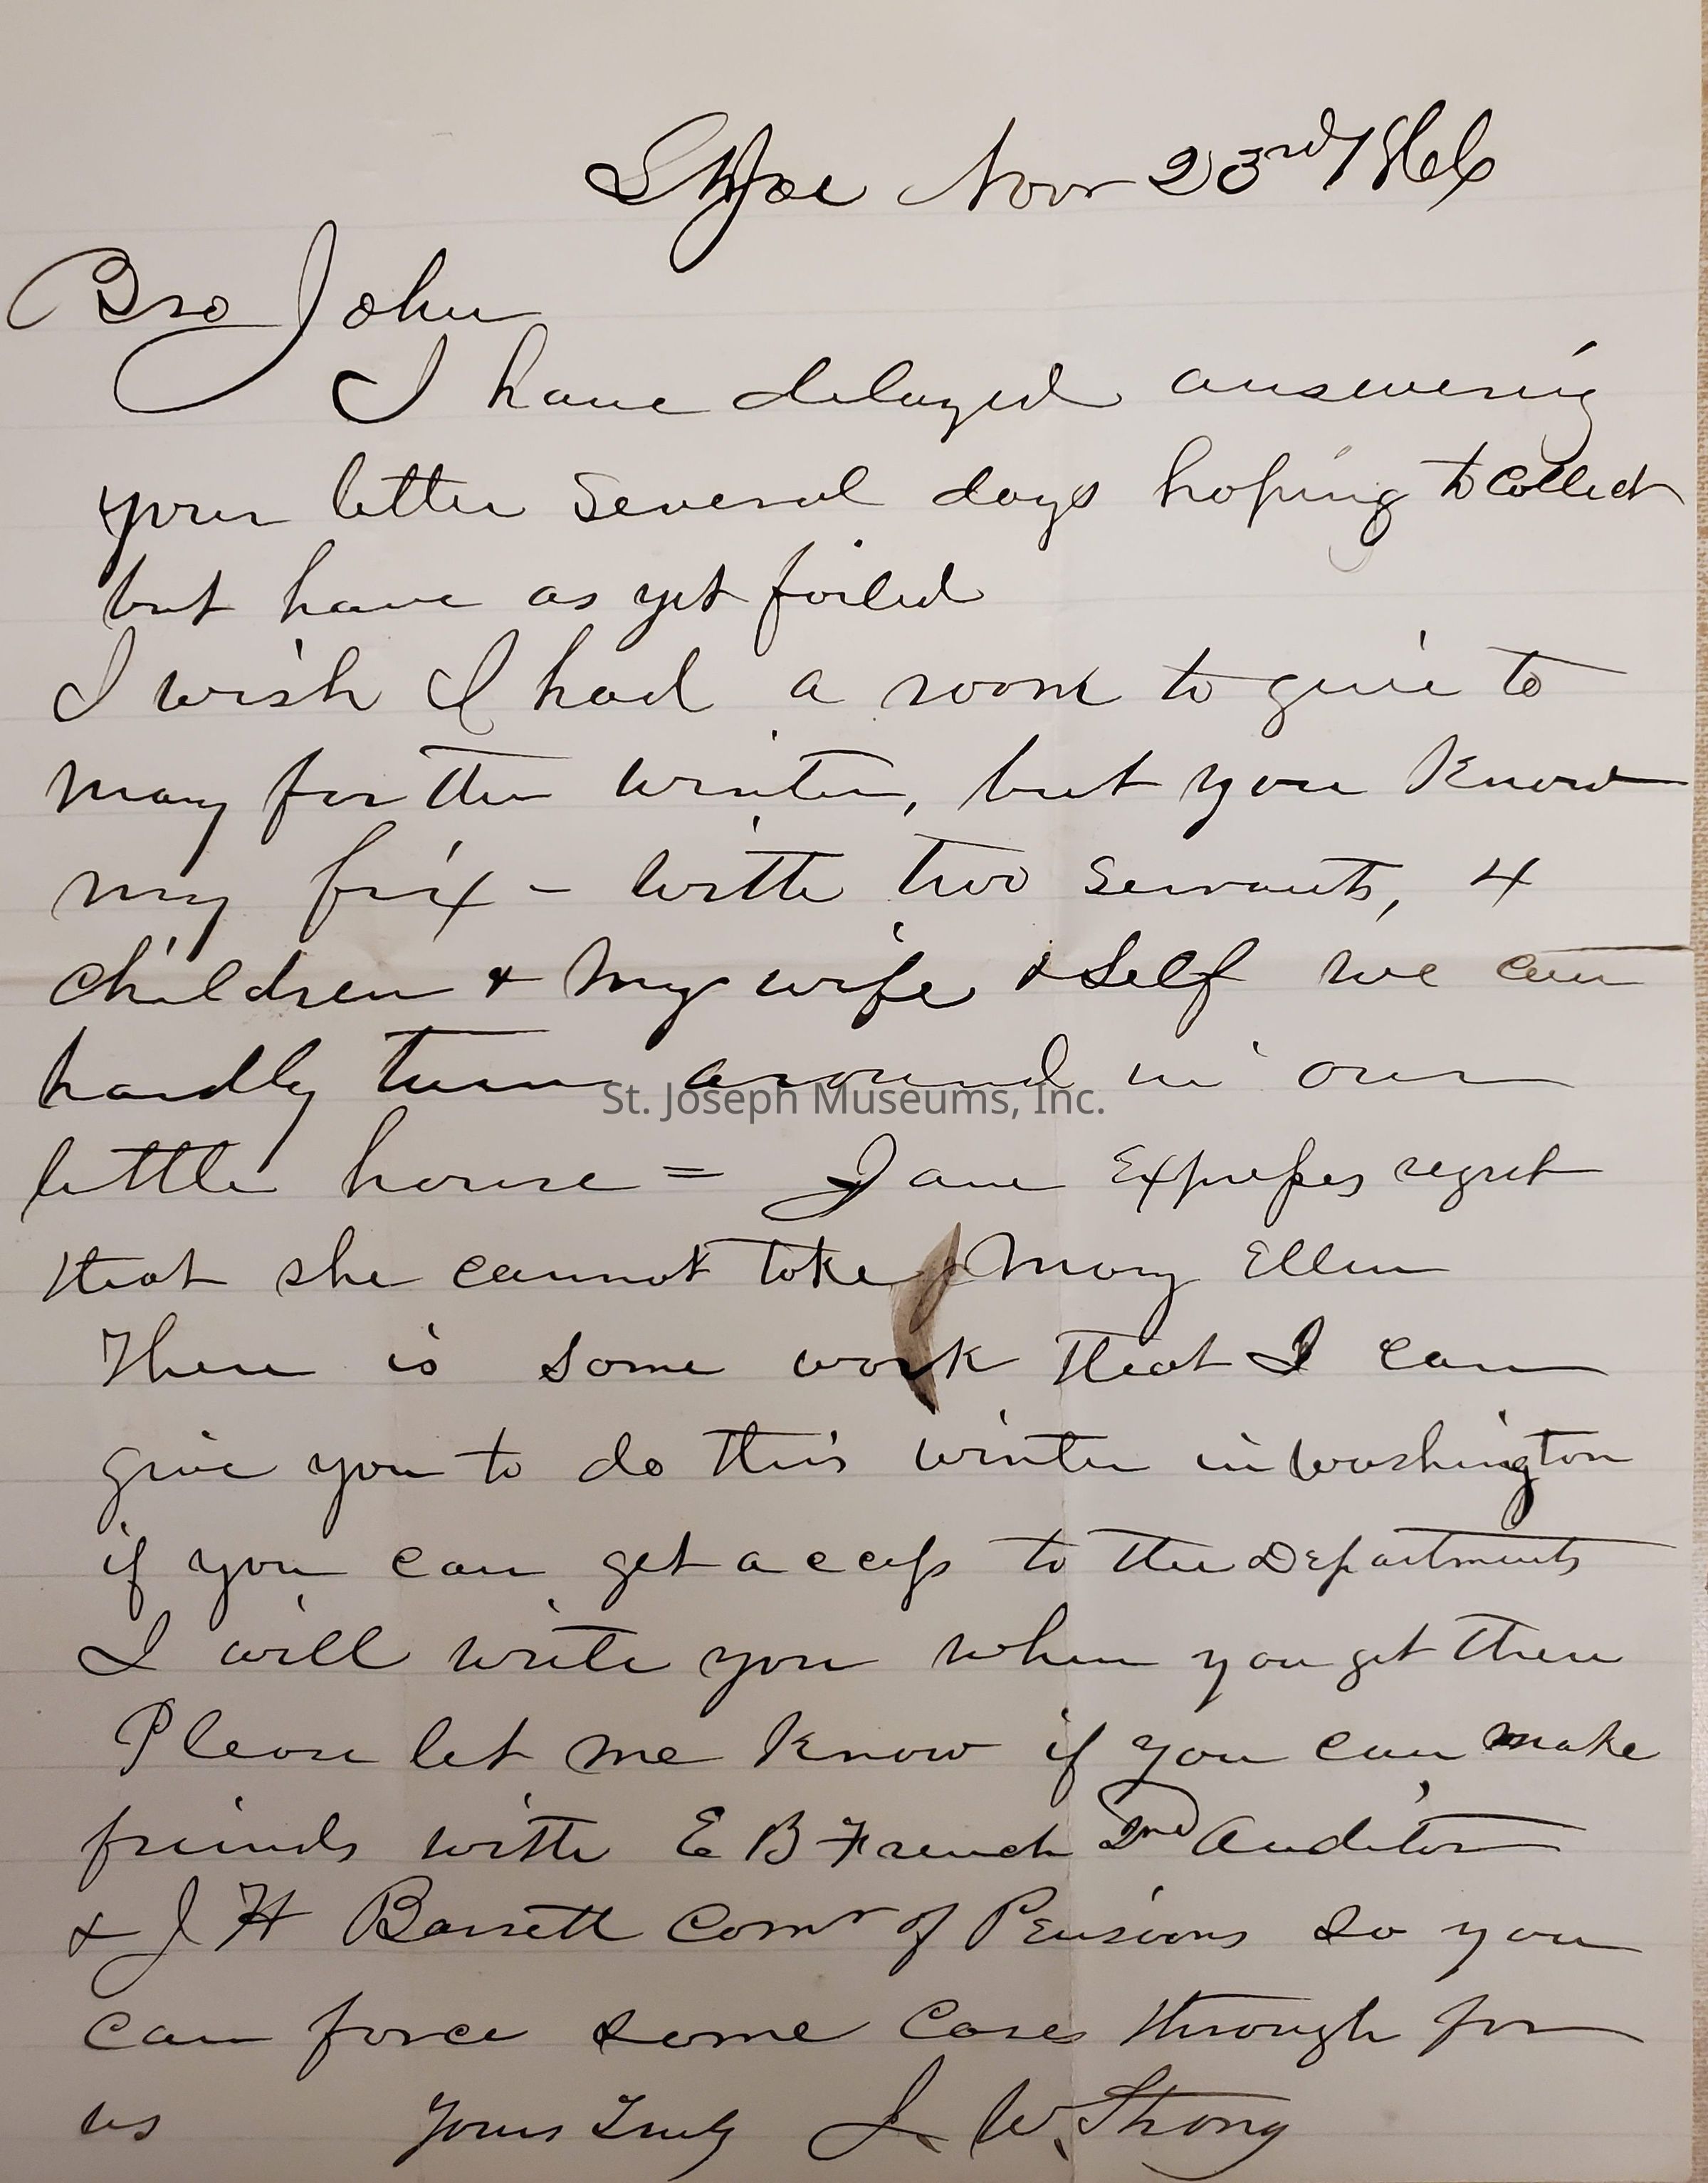 St Joe Novr 23rd 1866
Bro John
I have delayed answering
your letter several days hoping to collect
but have as yet failed
I wish I had a room to give to
Mary for the winter, but you know
my fix - with two servants, 4
children & my wife & self we can
hardly turn around in our
St. Joseph Museums, Inc.
little house = Jane Expresses regret
that she cannot take Mary Ellen
There is some work that I can
give you to do this winter in Washington
if you can get access to the Departments
I will write you when you get there
Please let me know if you can make
friends with E B French 2nd Auditor
& J H Barrett Comr of Pensions so you
can force some cases through for
us Yours Truly J. W. Strong